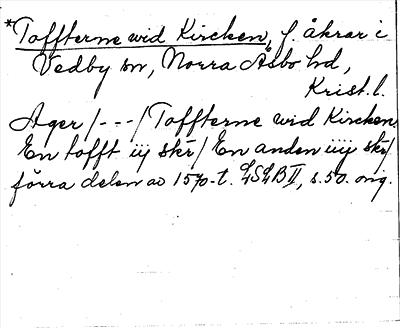 *Toffterne wid Kircken, f. åkrar i
Vedby sn, Norra Åsbo hd,
Krist. l.
Ager/---/Toffterne wid Kircken.
En tofft iij skr/ En anden iiij skr/
förra delen av 1570-t. LSLB II, s. 50. orig.